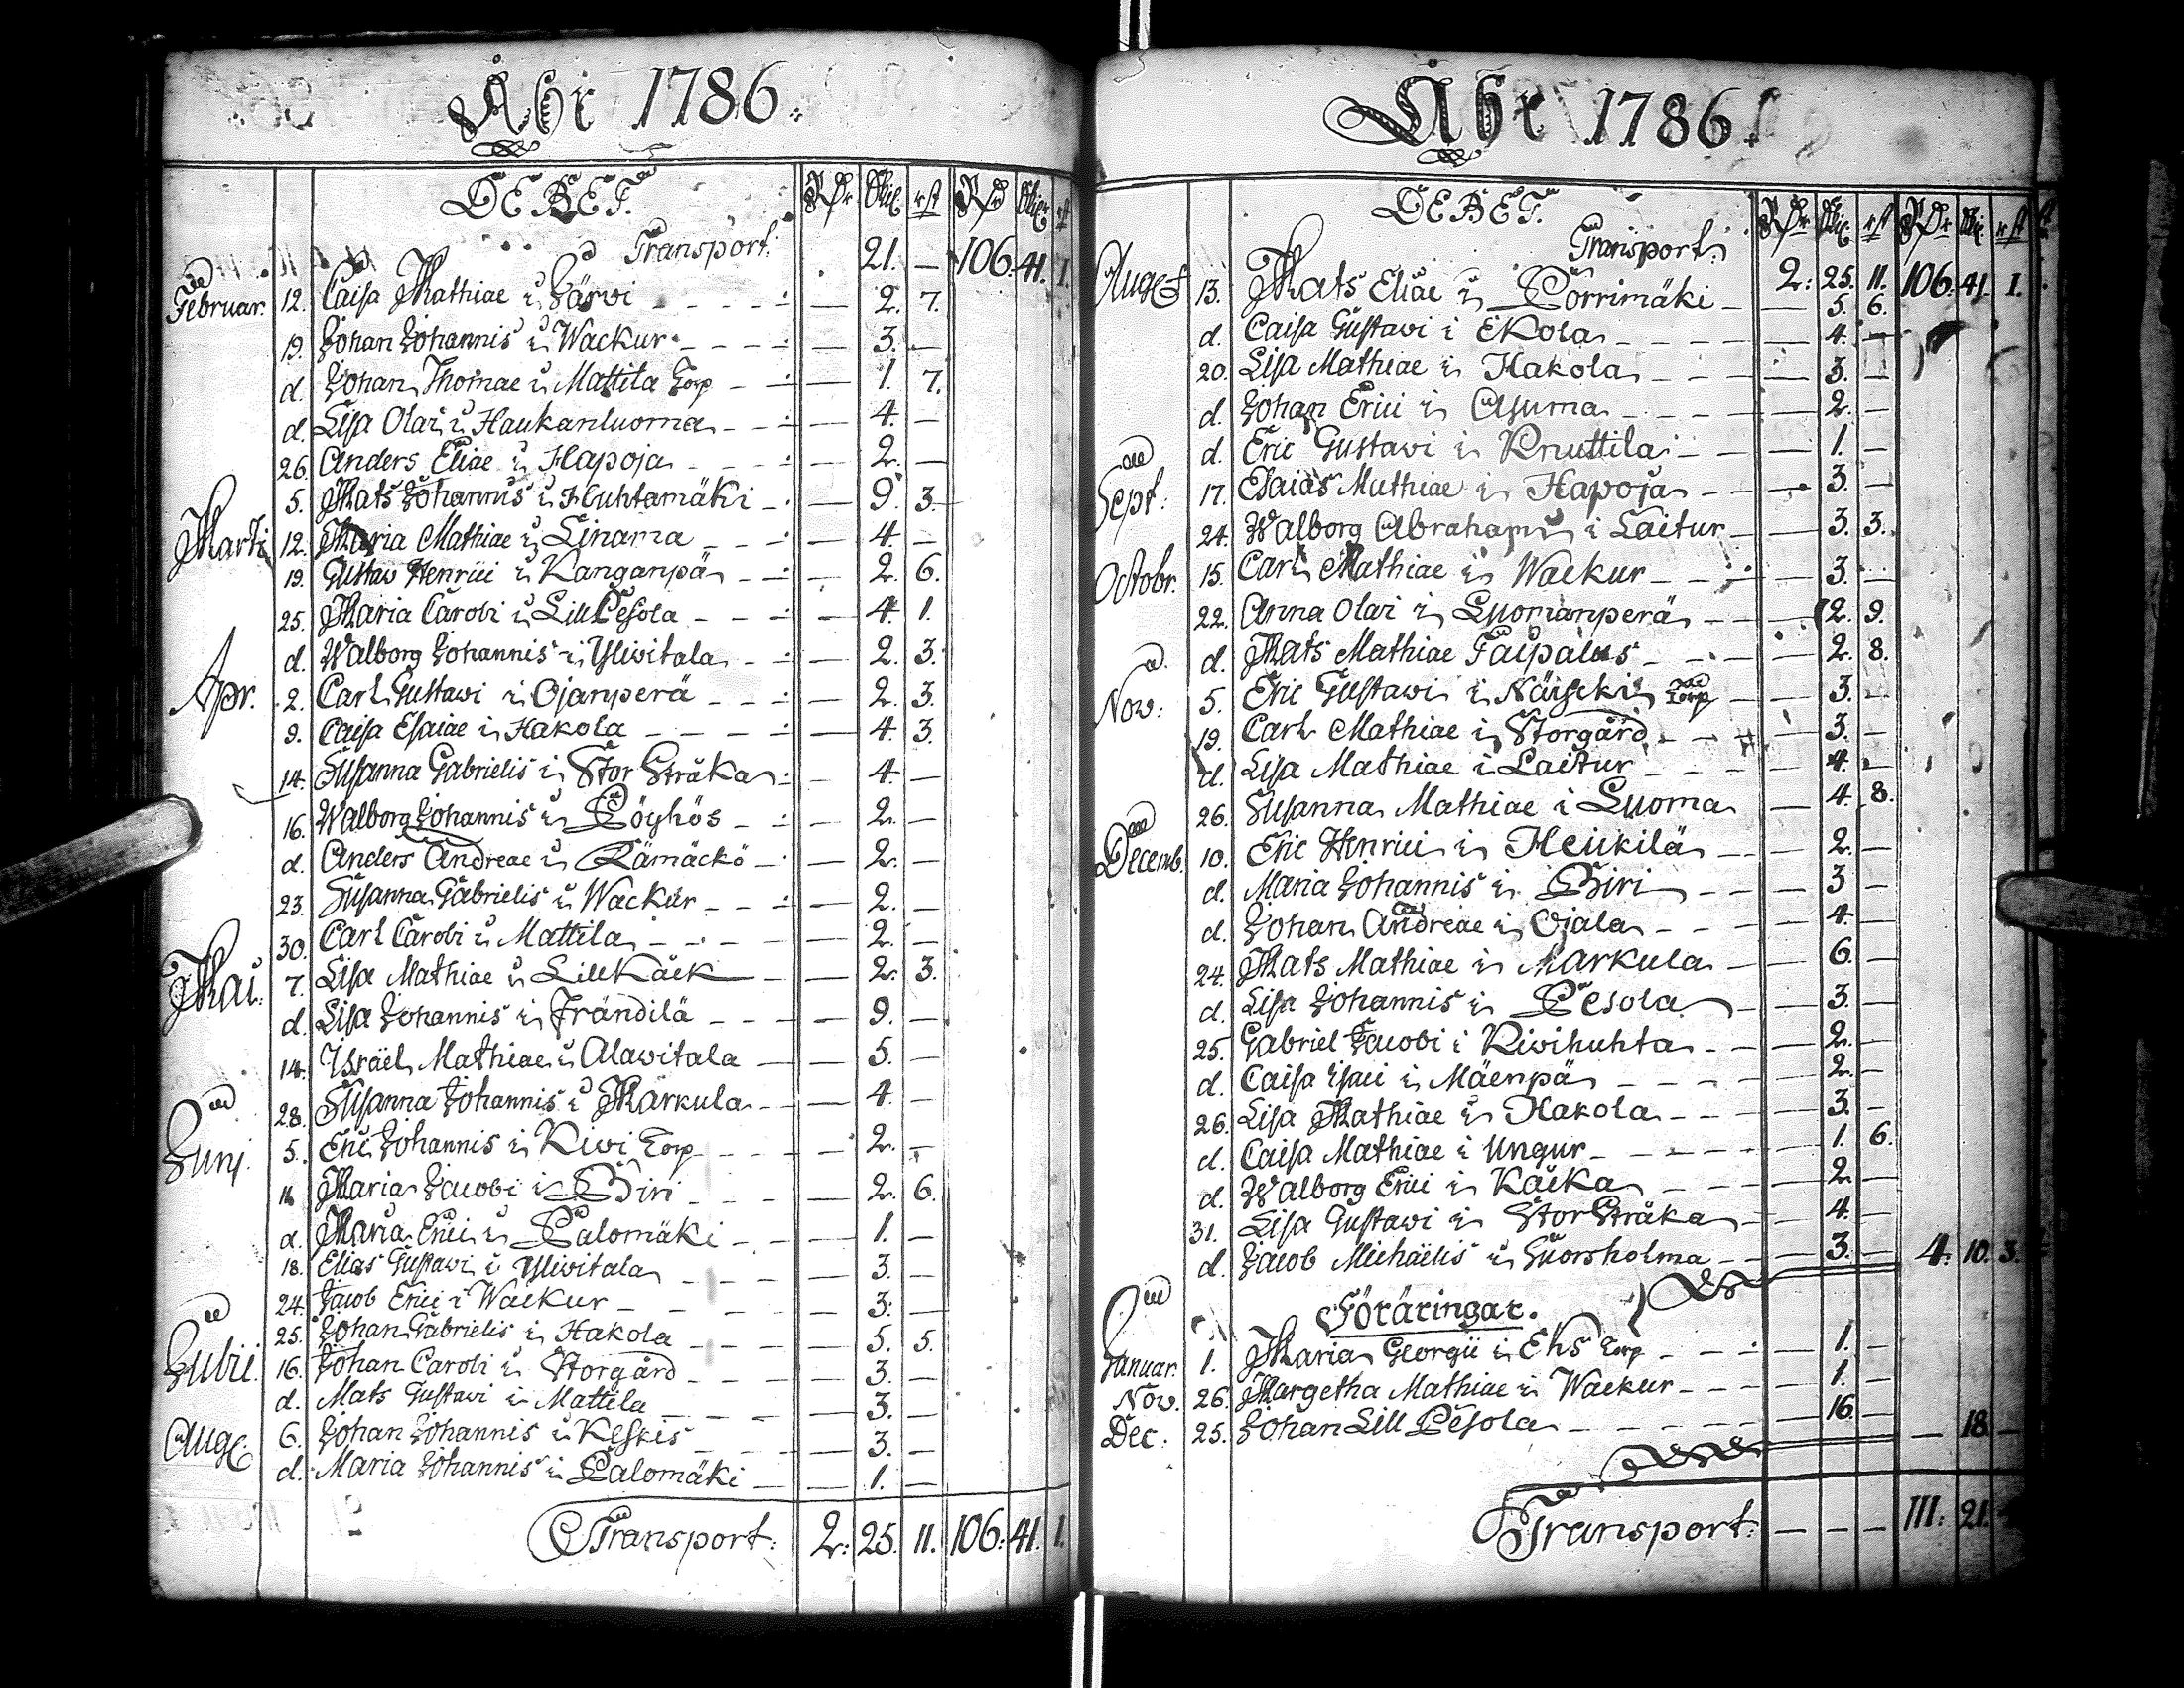 Åhr 1786.
DEBET. RDr Skil. rst RDr Skil. rst
Transport: 21. — 106. 41. 1.
Februar. 12. Caisa Mathiae i Järwi — 2. 7.
19. Johan Johannis i Wackur — 3. —
d. Johan Thomae i Mattila Torp — 1. 7.
d. Lisa Olai i Haukanluoma — 4. —
26. Anders Eliae i Hapoja — 2. —
5. Mats Johannis i Huhtamäki — 9. 3.
Marti 12. Maria Mathiae i Linama — 4. —
19. Gustav Henrici i Kanganpä — 2. 6.
25. Maria Caroli i Lill Pesola — 4. 1.
d. Walborg Johannis i Yliwitala — 2. 3.
Apr. 2. Carl Gustawi i Ojanperä — 2. 3.
9. Caisa Esaiae i Hakola — 4. 3.
14. Susanna Gabrielis i Stor Stråka — 4. —
16. Walborg Johannis i Pöyhös — 2. —
d. Anders Andreae i Rämäckö — 2. —
23. Susanna Gabrielis i Wackur — 2. —
30. Carl Caroli i Mattila — 2. —
Mai: 7. Lisa Mathiae i Lill Käck — 2. 3.
d. Lisa Johannis i Frändilä — 9. —
14. Israël Mathiae i Alawitala — 5. —
28. Susanna Johannis i Markula — 4. —
Junj. 5. Eric Johannis i Kiwi Torp — 2. —
11. Maria Jacobi i Biri — 2. 6.
d. Maria Erici i Palomäki — 1. —
18. Elias Gustawi i Yliwitala — 3. —
24. Jacob Erici i Wackur — 3. —
25. Johan Gabrielis i Hakola — 5. 5.
Julii. 16. Johan Caroli i Storgård — 3. —
d. Mats Gustawi i Mattila — 3. —
Aug. 6. Johan Johannis i Keskis — 3. —
d. Maria Johannis i Palomäki — 1. —
Transport: 2: 25. 11. 106: 41. 1.
Åhr 1786.
DEBET. RDr Skil. rst RDr Skil. rst
Transport: 2: 25. 11. 106: 41. 1.
Augst 13. Mats Eliae i Porrimäki — 5. 6.
d. Caisa Gustawi i Ekola — 4. —
20. Lisa Mathiae i Hakola — 3. —
d. Johan Erici i Asuma — 2. —
d. Eric Gustawi i Knuttila — 1. —
Sept. 17. Esaias Mathiae i Hapoja — 3. —
24. Walborg Abrahami i Laitur — 3. 3.
Octobr. 15. Carl Mathiae i Wackur — 3. —
22. Anna Olai i Luomanperä — 2. 9.
d. Mats Mathiae Taipalus — 2. 8.
Nov: 5. Eric Gustawi i Näiseki Torp — 3. —
19. Carl Mathiae i Storgård — 3. —
d. Lisa Mathiae i Laitur — 4. —
26. Susanna Mathiae i Luoma — 4. 8.
Decemb. 10. Eric Henrici i Heickilä — 2. —
d. Maria Johannis i Biri — 3 —
d. Johan Andreae i Ojala — 4. —
24. Mats Mathiae i Markula — 6. —
d. Lisa Johannis i Pesola — 3. —
25. Gabriel Jacobi i Kiwihuhta — 2. —
d. Caisa Isaci i Mäenpä — 2. —
26. Lisa Mathiae i Hakola — 3. —
d. Caisa Mathiae i Ungur — 1. 6.
d. Walborg Erici i Käcka — 2. —
31. Lisa Gustawi i Stor Stråka — 4. —
d. Jacob Michaëlis i Guorsholma — 3. — 4: 10. 3.
Föräringar.
Januar. 1. Maria Georgii i Ehs Torp — 1. —
Nov. 26. Margetha Mathiae i Wackur — 1. —
Dec: 25. Johan Lill Pesola — 16. — — 18. —
Transport: — — — 111: 21.